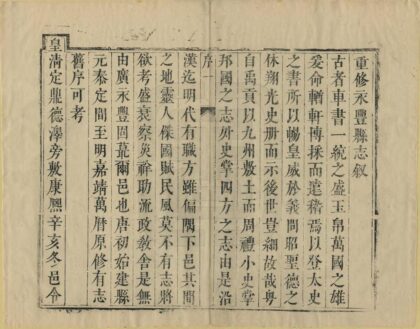 重修永豐縣志叙
古者車書一統之盛玉帛萬國之雄
爰命輶軒博採而遐稽焉以登太史
之書所以暢皇威於義問昭聖德之
休翔光史冊而示後世豈細故哉粤
自禹貢以九州敷土而周禮小史掌
邦國之志外史掌四方之志由是沿
序 一
漢迄明代有職方雖偏隅下邑其間
之地靈人傑國賦民風莫不有志將
欲考盛衰察災祥助流政教舍是無
由廣永豐固蕞爾邑也唐初始建縣
元泰定間至明嘉靖萬曆原修有志
舊序可考
皇清定鼎德澤旁敷康熈辛亥冬邑令